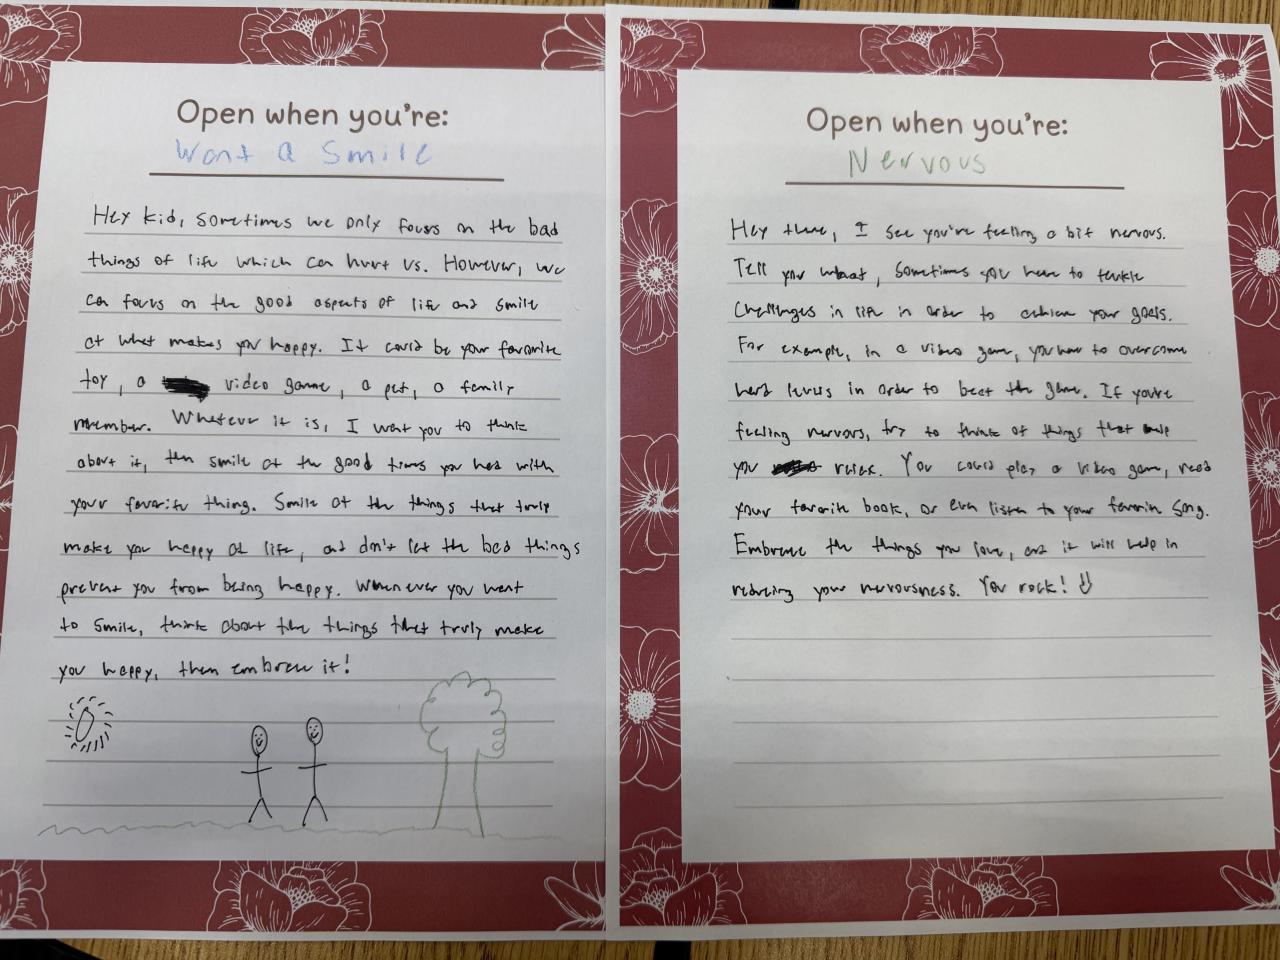 Open when you're:
Want a Smile
Hey kid, sometimes we only focus on the bad
things of life which can hurt us. However, we
can focus on the good aspects of life and smile
at what makes you happy. It could be your favorite
toy, a video game, a pet, a family
member. Whatever it is, I want you to think
about it, then smile at the good times you had with
your favorite thing. Smile at the things that truly
make you happy at life, and don't let the bad things
prevent you from being happy. Whenever you want
to smile, think about the things that truly make
you happy, then embrace it!
Open when you're:
Nervous
Hey there, I see you're feeling a bit nervous.
Tell you what, sometimes you have to tackle
challenges in life in order to achieve your goals.
For example, in a video game, you have to overcome
hard levels in order to beat the game. If you're
feeling nervous, try to think of things that help
you relax. You could play a video game, read
your favorite book, or even listen to your favorite song.
Embrace the things you love, and it will help in
reducing your nervousness. You rock!